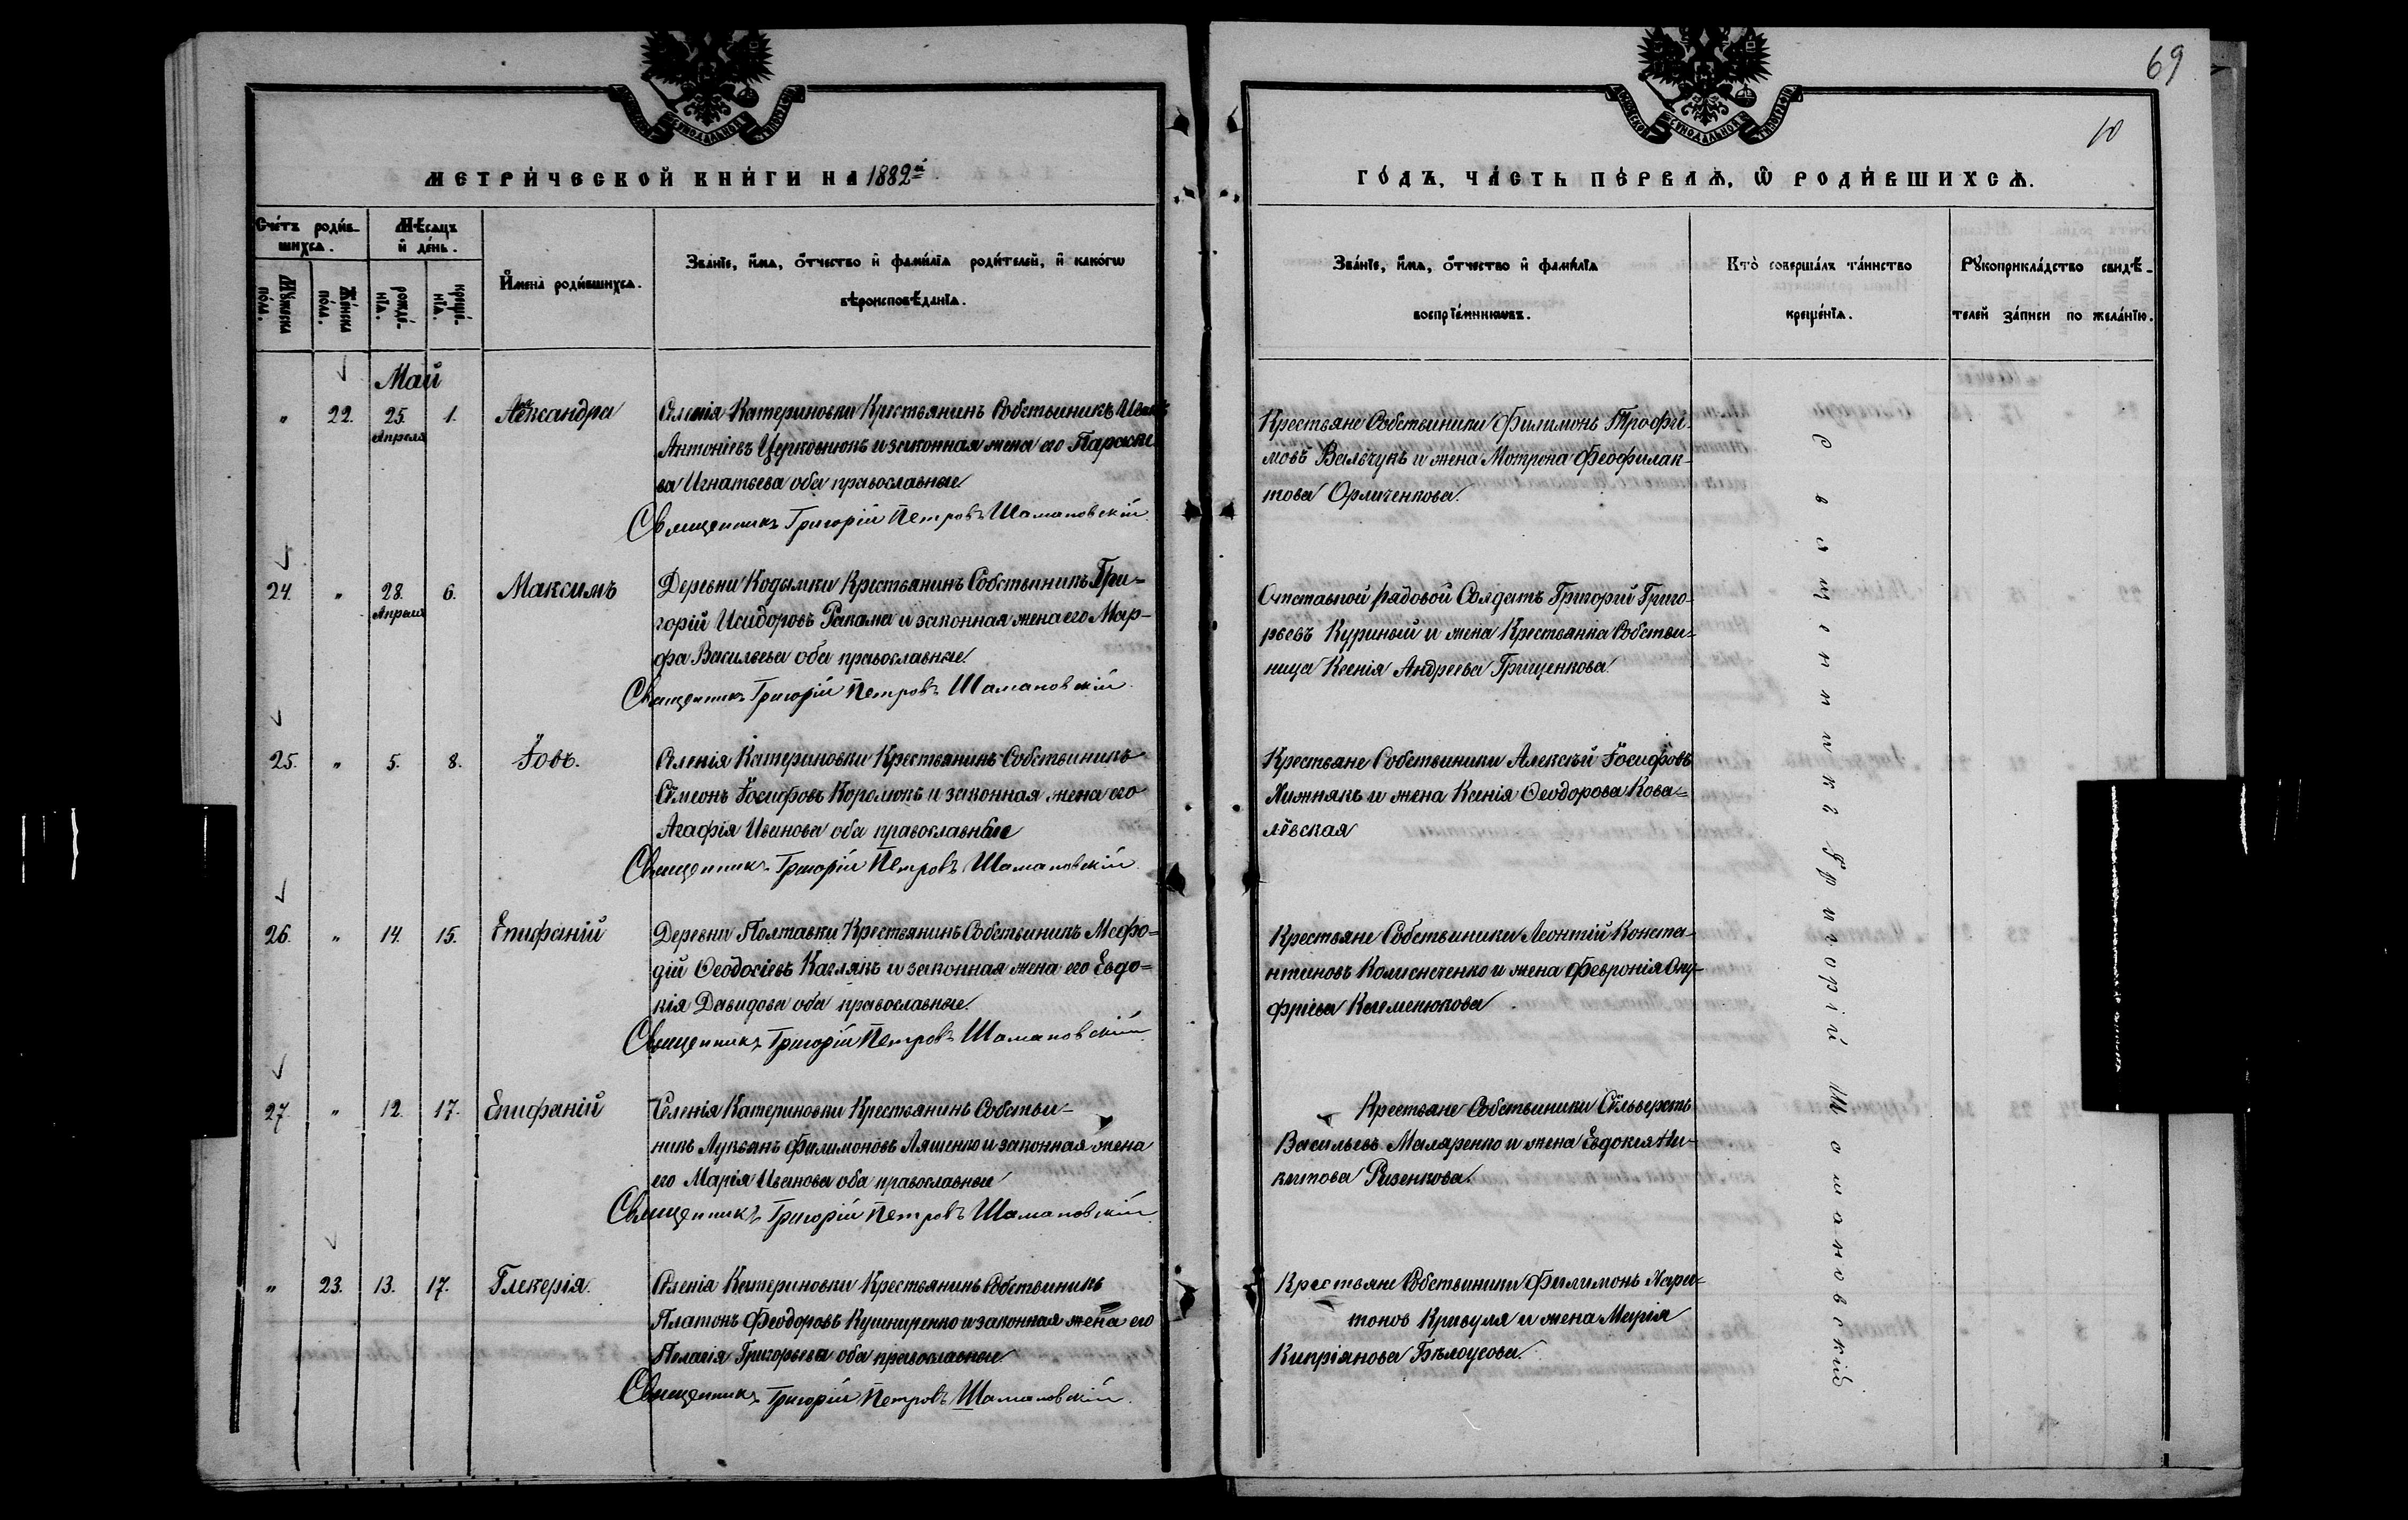 69
10
МЕТРИ́ЧЕСКОЙ КНИ́ГИ НА 1882й
ГО́ДЪ, ЧА́СТЬ ПЕ́РВАѦ, Ѡ РОДИ́ВШИХСѦ.
Сче́тъ роди́в-
шихсѧ.
Мѣ́сѧцъ
и де́нь.
Имена̀ роди́вшихсѧ.
Зва́нїе, и́мѧ, о́тчество и фами́лїѧ роди́телей, и како́гѡ
вѣроисповѣ́данїѧ.
Му́жеска по́ла.
Же́нска по́ла.
рожде́-нїѧ.
креще́-нїѧ.
Зва́нїе, и́мѧ, о́тчество и фами́лїѧ
воспрїе́мникѡвъ.
Кто̀ соверша́лъ та́инство
креще́нїѧ.
Рꙋкоприкла́дство свидѣ́-
телей за́писи по жела́нїю.
Май
" 22. 25. Апреля 1. Александра
Селенія Катериновки Крестьянинъ Собственникъ Иванъ
Антоніевъ Церковнюкъ и законная жена его Параске
ва Игнатьева оба православные.
Священникъ Григорій Петровъ Шамановскій.
Крестьяне Собственники Филимонъ Трофи-
мовъ Вальчукъ и жена Мотрона Феофилак-
това Орличенкова.
24. " 28. Апреля 6. Максимъ
Деревни Кодымки Крестьянинъ Собственникъ Гри=
горій Исидоровъ Ракама и законная жена его Мар-
фа Васильева оба православные.
Священникъ Григорій Петровъ Шамановскій.
Отставной рядовой Солдатъ Григорій Григо-
рьевъ Куриный и жена Крестьянка Собствен-
ница Ксенія Андреева Грищенкова.
25. " 5. 8. Іовъ.
Селенія Катериновки Крестьянинъ Собственникъ
Сѵмеонъ Іосифовъ Королюкъ и законная жена его
Агафія Иванова оба православные
Священникъ Григорій Петровъ Шамановскій.
Крестьяне Собственники Алексѣй Іосифовъ
Хижнякъ и жена Ксенія Ѳеодорова Кова=
лёвская
26. " 14. 15. Епифаній
Деревни Полтавки Крестьянинъ Собственникъ Мефо=
дій Ѳеодосіевъ Каглякъ и законная жена его Евдо=
кія Давидова оба православные.
Священникъ Григорій Петровъ Шамановскій.
Крестьяне Собственники Леонтій Конста-
нтиновъ Колисниченко и жена Февронія Ону-
фріева Клеменюкова
27. " 12. 17. Епифаній
Селенія Катериновки Крестьянинъ Собствен-
никъ Лукьянъ Филимоновъ Ляшенко и законная жена
его Марія Иванова оба православные
Священникъ Григорій Петровъ Шамановскій.
Крестьяне Собственники Сѵльверстъ
Васильевъ Маляренко и жена Евдокія Ни-
китова Ризенкова.
" 23. 13. 17. Глекерія.
Селенія Катериновки Крестьянинъ Собственникъ
Платонъ Феодоровъ Кушниренко и законная жена его
Пелагія Григорьева оба православные.
Священникъ Григорій Петровъ Шамановскій.
Крестьяне Собственники Филимонъ Хари-
тоновъ Кривуля и жена Марія
Кипріянова Бѣлоусова.
Священникъ Григорій Шамановскій